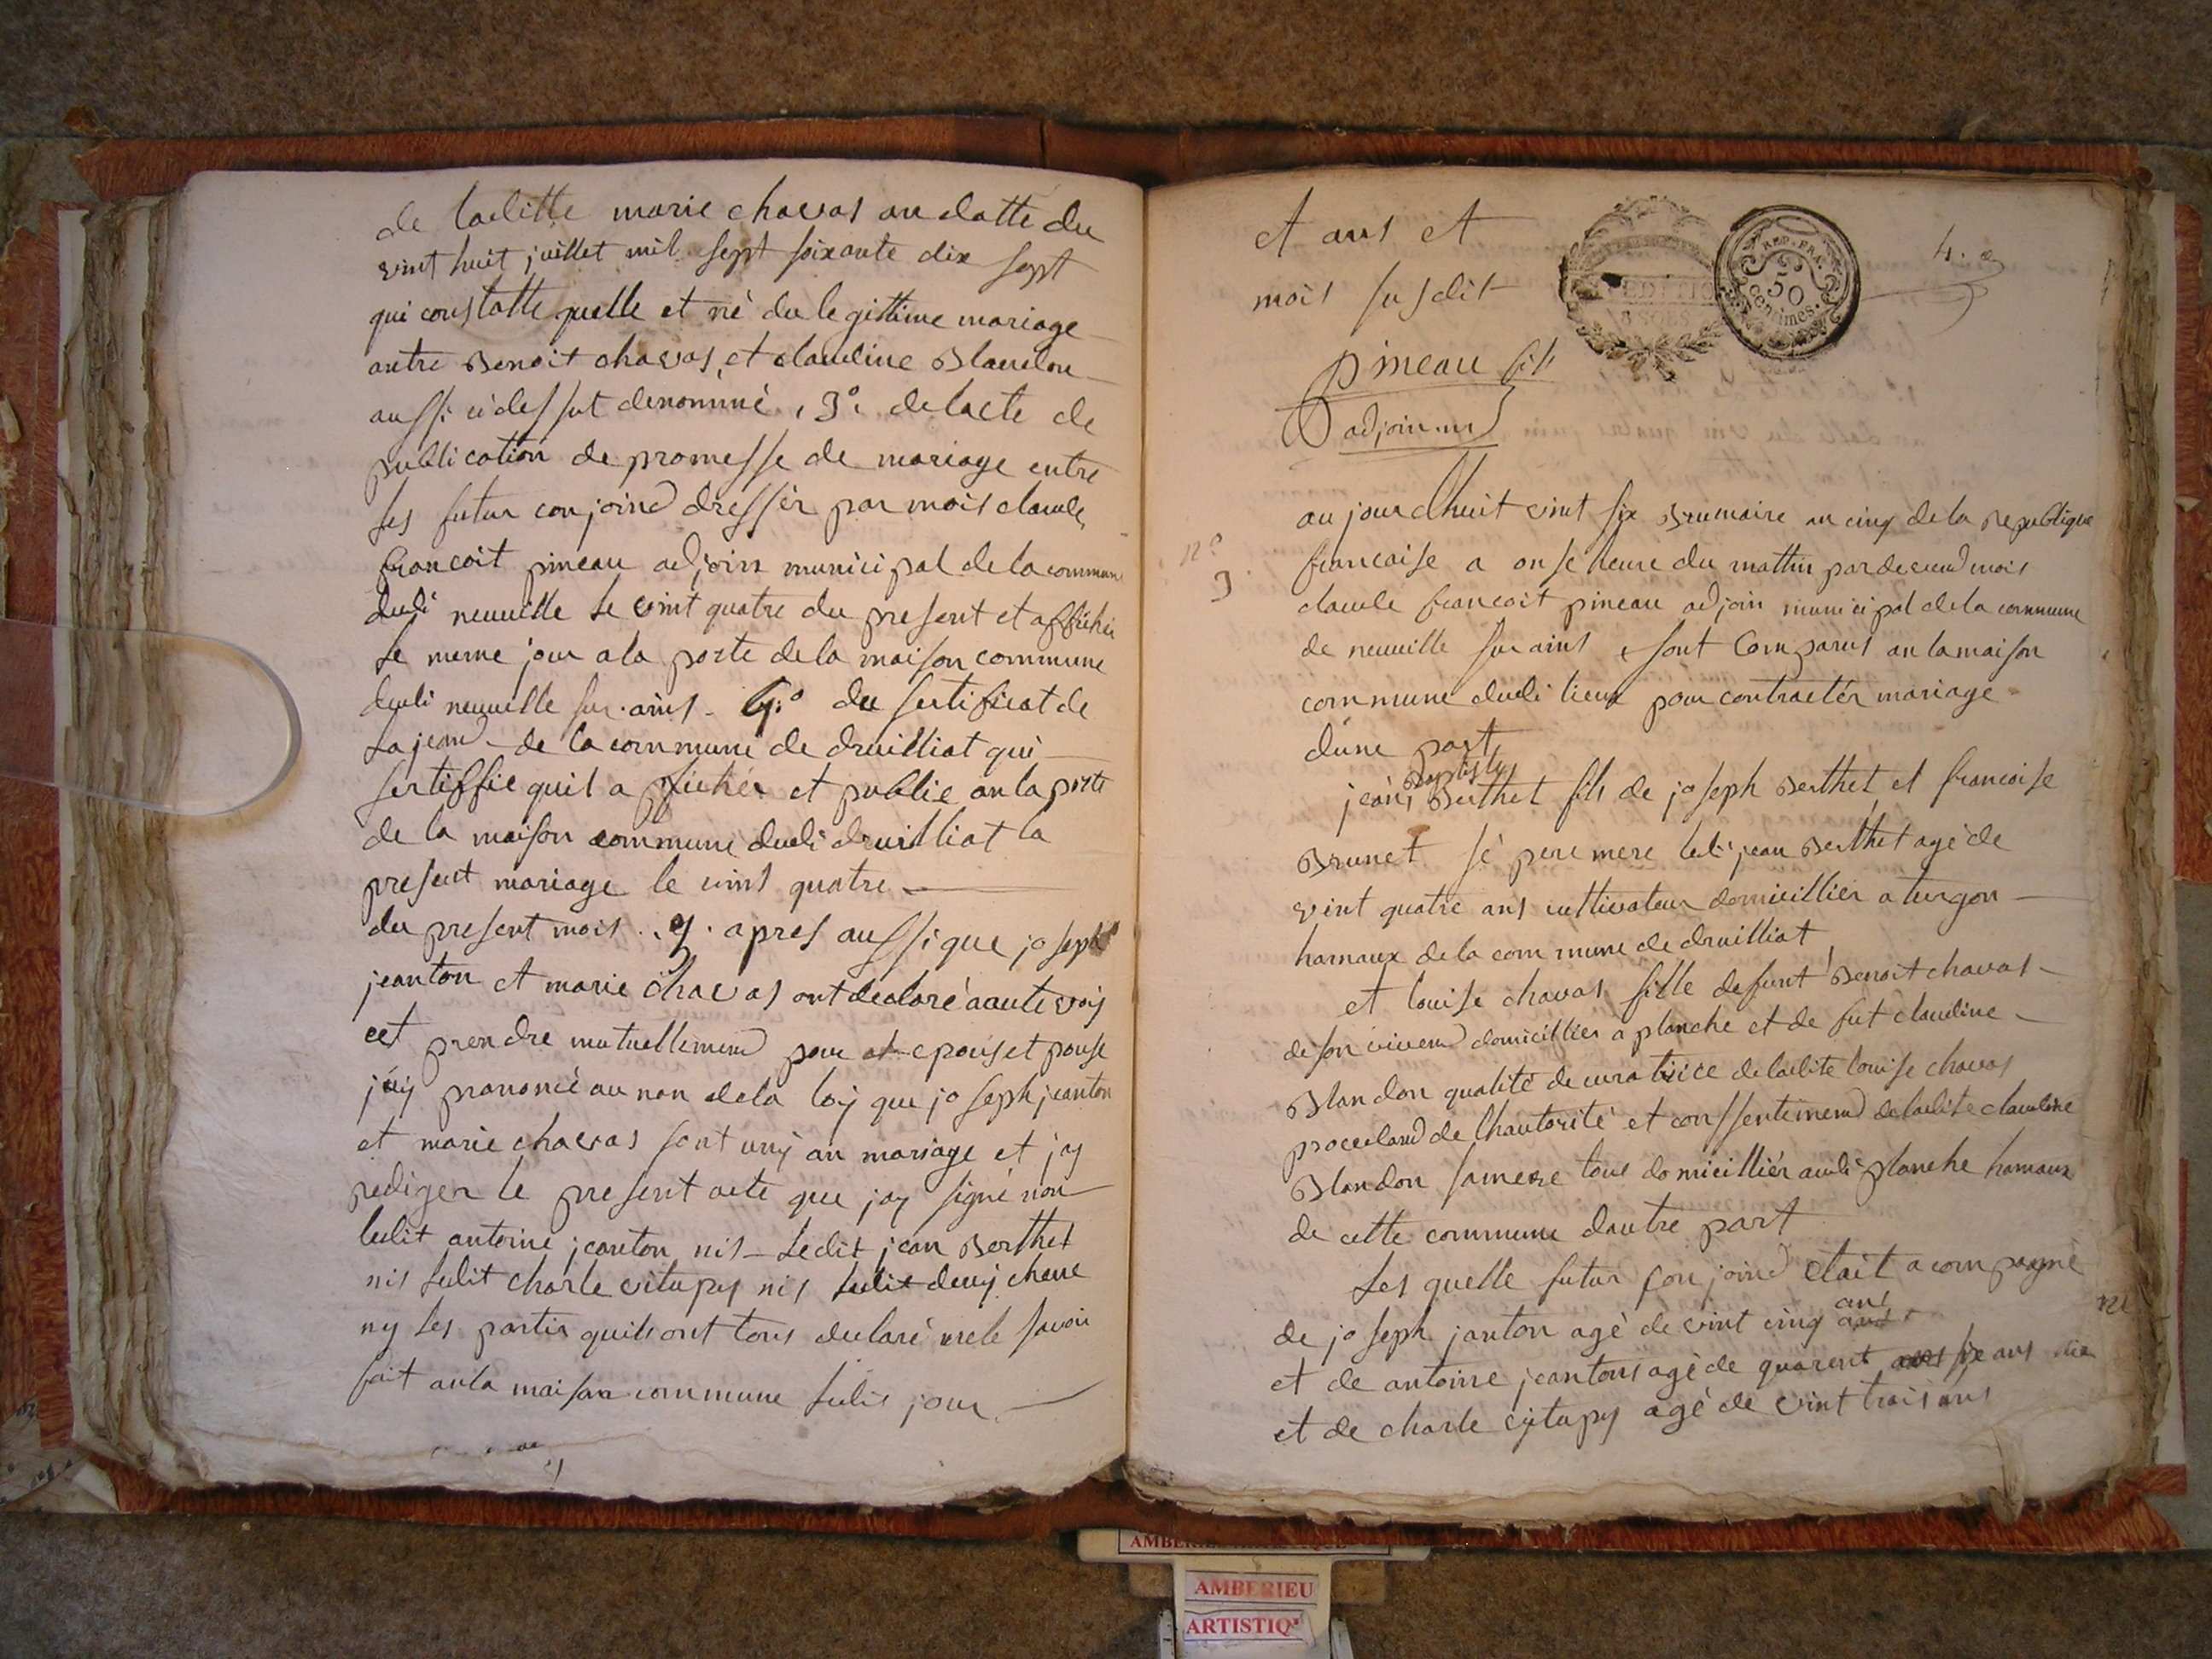 de laditte marie chavas au datte du
vint huit juillet mil sept soixante dix sept
qui constatte quelle et né du legittime mariage
antre Benoit chavas et claudine Blandon
aussi cÿ dessut denommé . 3° de lacte de
publication de promesse de mariage entre
les futur conjoind dressér par mois claude
francoit pineau adjoin municipal de la commune
dudi neuville le vint quatre du present et affiché
le meme jour a la porte de la maison commune
dudi neuville sur ains - 4° du sertificat de
lajeand de la commune de druilliat qui
sertiffie quil a ffichér et publie an la porte
de la maison commune dudi druilliat la
present mariage le vint quatre
du present mois . apres aussi que joseph
jeanton et marie chavas ont declaré aaute voiy
cet prendre mutuellemend pour et epouset pouse
jaiy prononcé au non de la loiy que joseph jeanton
et marie chavas sont uny an mariage et jay
rediger le present acte que jay signé non
ledit antoine jeanton nis - Ledit jean Berthet
nis ledit charle vitupy nis ledit deny chene
ny les partis quils ont tous declaré ne le savoir
fait an la maison commune ledis jour
et ans et
mois susdit
REP. FRA.
50
centimes.
4.
pineau fils
adjoin
au jourdhuit vint six Brumaire an cinq de la Republique
n°
3
francaise a onse heure du mattin par devend mois
claude francoit pineau adjoin municipal de la commune
de neuville sur ains sont Comparus an la maison
commune dudi lieux pour contractér mariage
dune part
baptiste
jean, Berthet fils de joseph Berthet et francoise
Brunet sé pere mere ledi jean Berthet agé de
vint quatre ans cultivateur domicilliér a turgon
hamaux de la commune de druilliat
et louise chavas fille defunt Benoit chavas
de son vivend domicilliér a planche et de fut claudine
Blandon qualité de curatrice de ladite louise chavas
proceeland de lhautorité et conssentimend de ladite claudine
Blandon sa mere tous domicilliér audi planche hamaux
de cette commune dautre part
Les quelle futur conjoind etait acompagné
ans
de joseph janton agé de vint cinq ans
et de antoine jeantons agé de quarent ans six ans
et de charle vitupy agé de vint trois ans
AMBERIEU
ARTISTIQ